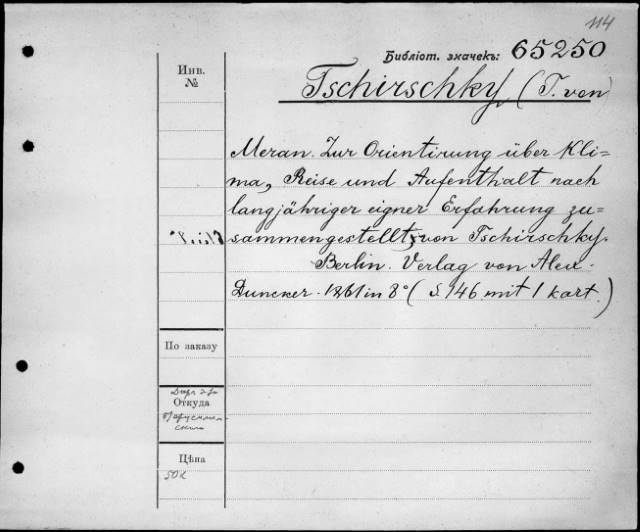 114
Библіот. значекъ: 65250
Инв.
№
Tschirschky (T. von)
Meran. Zur Orientirung über Kli=
ma, Reise und Aufenthalt nach
langjähriger eigner Erfahrung zu=
sammengestellt, von Tschirschky.
Berlin. Verlag von Alex.
Duncker. 1861 in 8° (S. 146 mit 1 kart.)
По заказу
Откуда
Цѣна
50 к